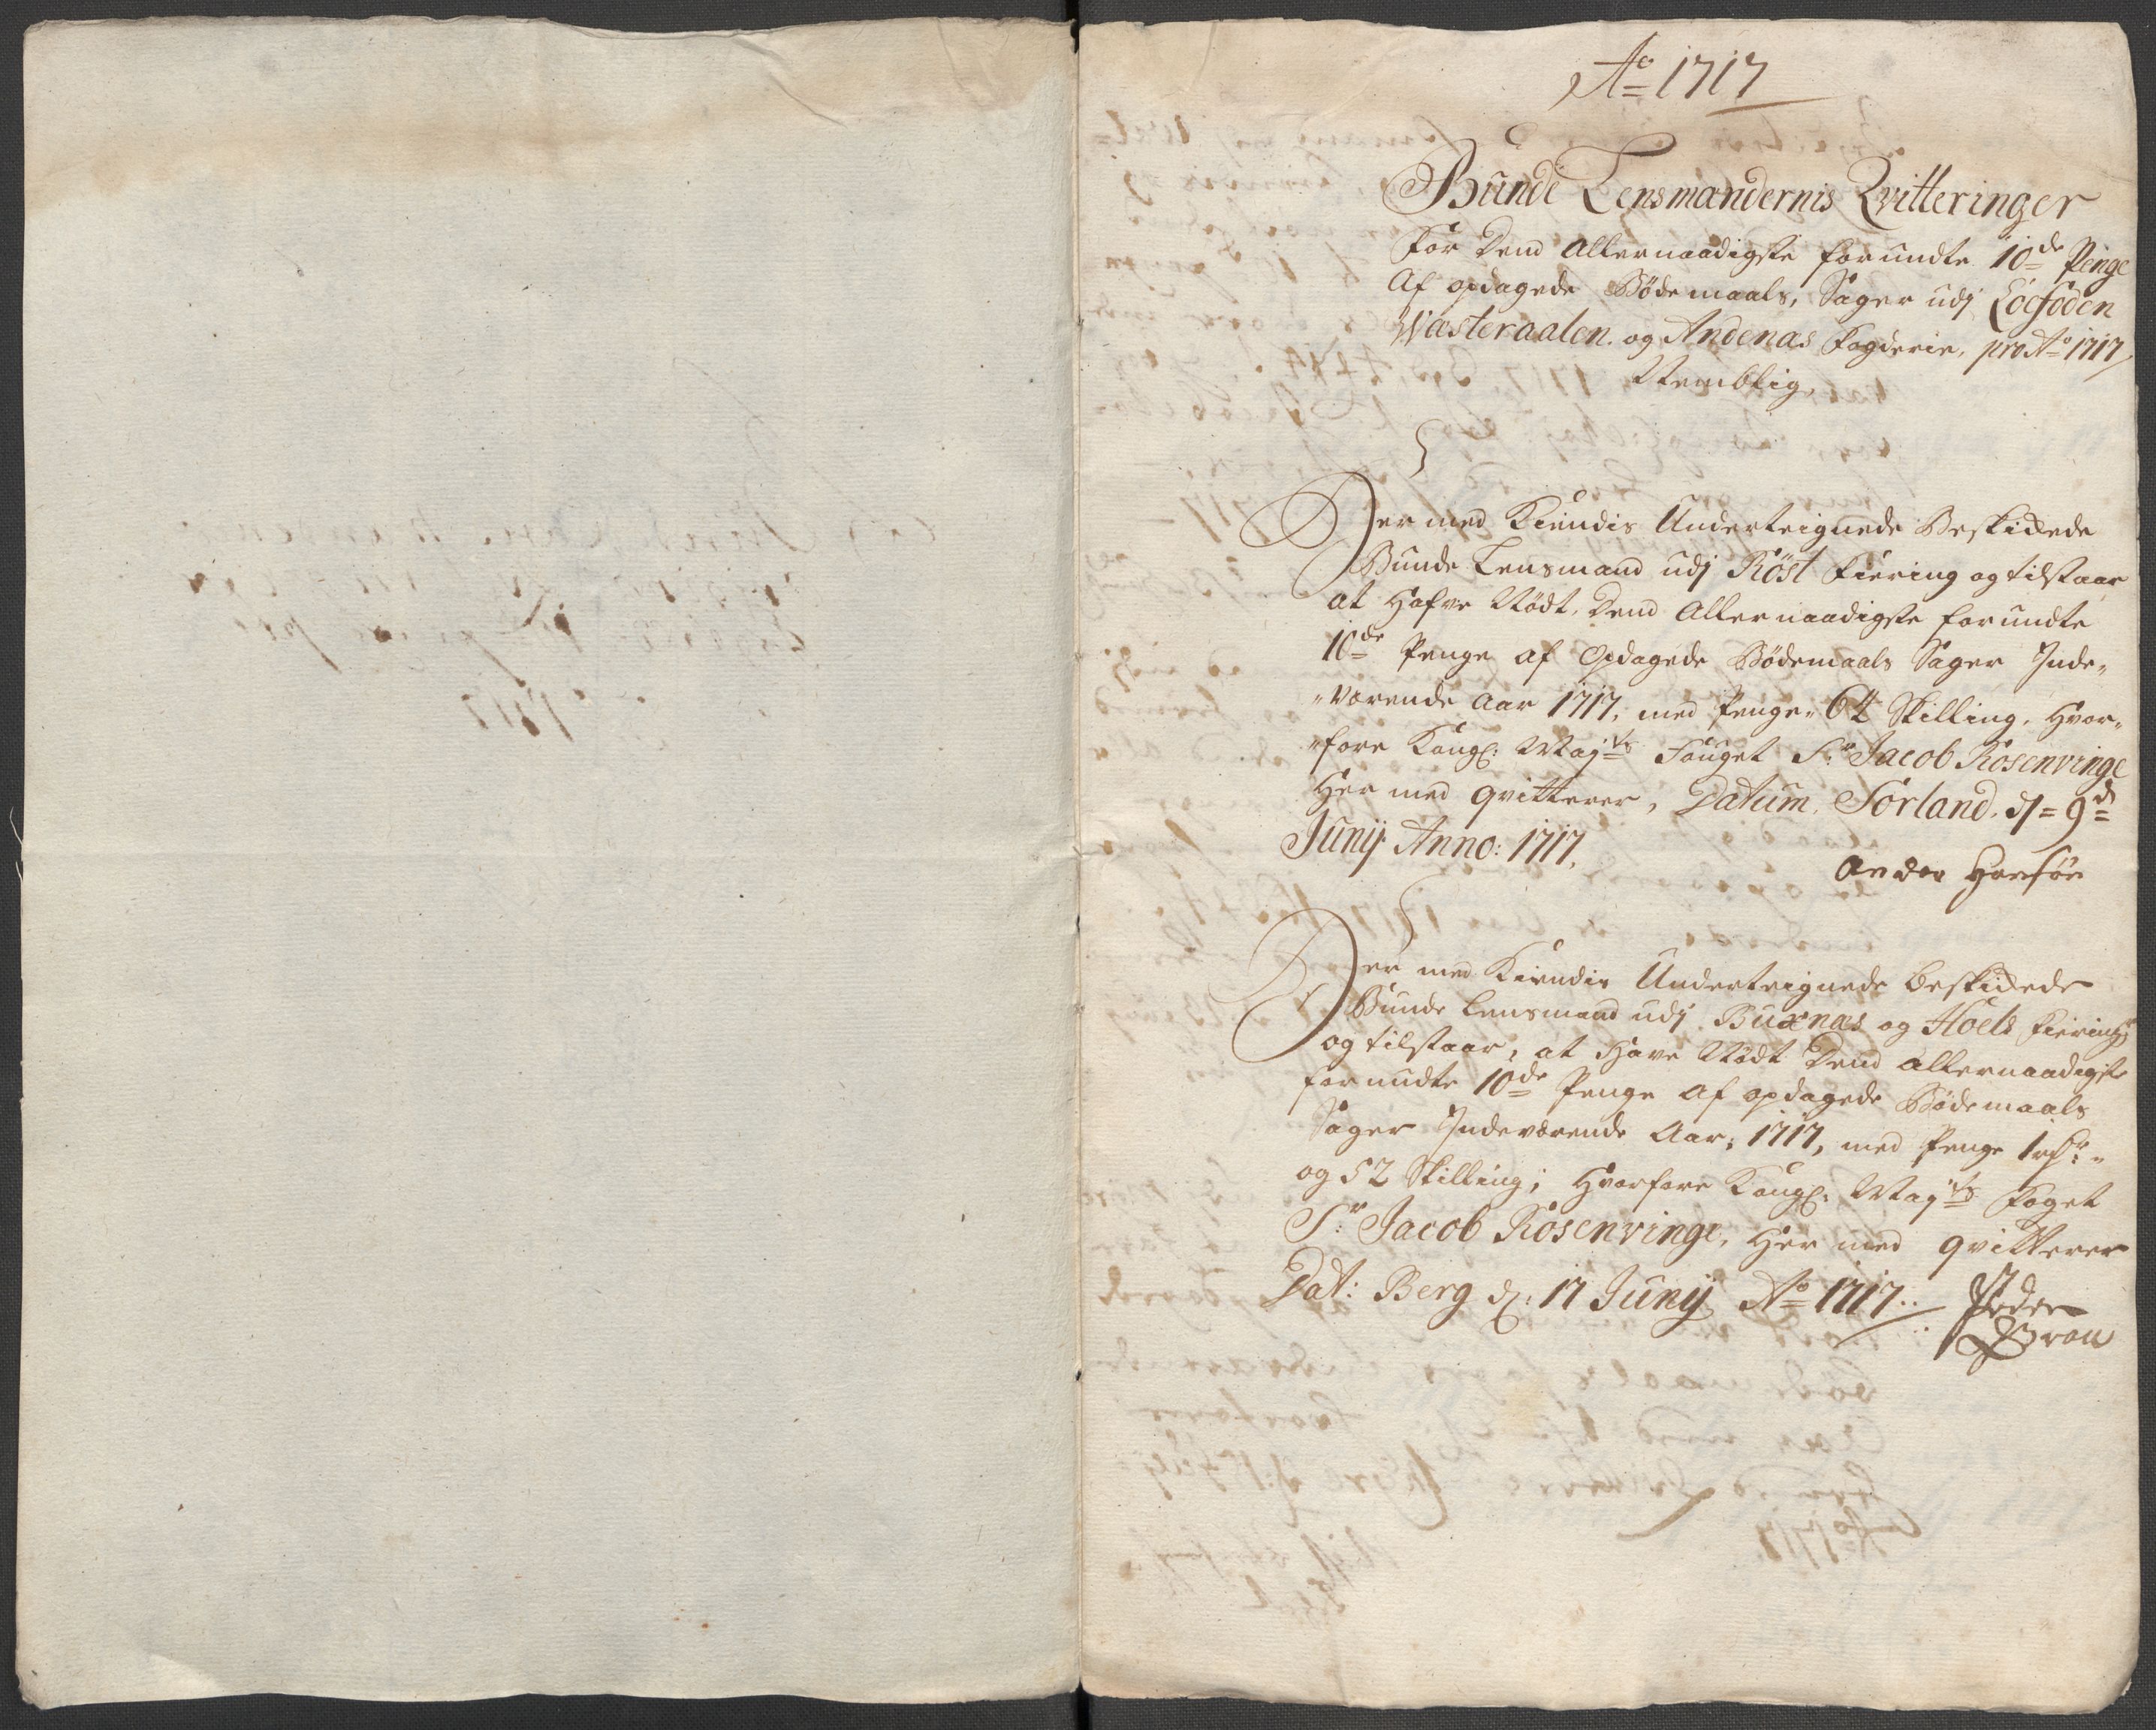 Ao 1717
Bunde Lensmandernis Qvitteringer
For Dend Allernaadigste forundte 10de Penge
Af opdagede Bødemaals, Sager udj Loefoden
Wæsteraalen og Andenæs Fogderie, pro Ao 1717
Nemblig,
Her med Kiendis Underteignede Beskickede
Bunde Lensmand udj Røst Fiering og tilstaar
at Hafve Nødt, Dend Allernaadigste forundte
10de Penge af Opdagede Bødemaals Sager Inde„
„værende Aar 1717, med Penge„ 64 Skilling, Hvor„
„fore Kongl: Mayts Fouget Sr. Jacob Rosenvinge
Her med qvitterer, Datum, Sørland, d= 9de
Junij Anno: 1717.
Ander Hansøn
Her med Kiendis Underteignede Beskickede
Bunde Lensmand udj Buxnæs og Hoels Fiering,
og tilstaar, at Have Nødt Dend allernaadigste
forundte 10de Penge af opdagede Bødemaals
Sager Indeværende Aar, 1717, med Penge 1 rdr.„
og 52 Skilling; Hvorfore Kongl: Mayts Foget
Sr. Jacob Rosenvinge, Her med qvitterer
Dat: Berg d: 17 Junij Ao 1717.
Peder
Bron